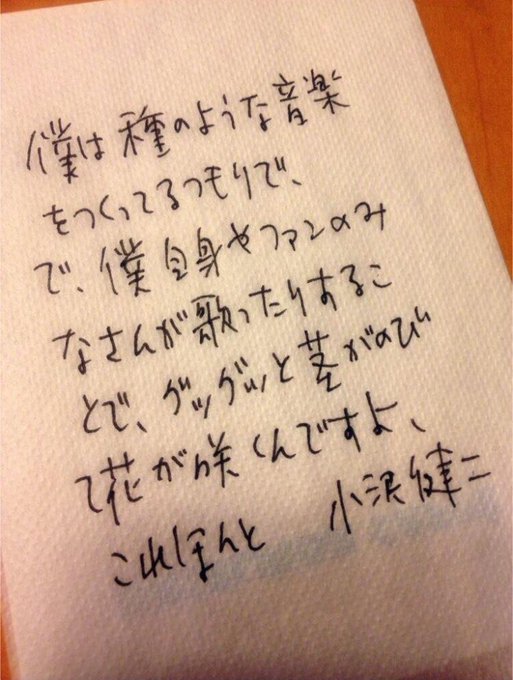 僕は種のような音楽
をつくってるつもりで、
で、僕自身やファンのみ
なさんが歌ったりするこ
とで、グッグッと茎がのび
て花が咲くんですよ、
これほんと 小沢健二